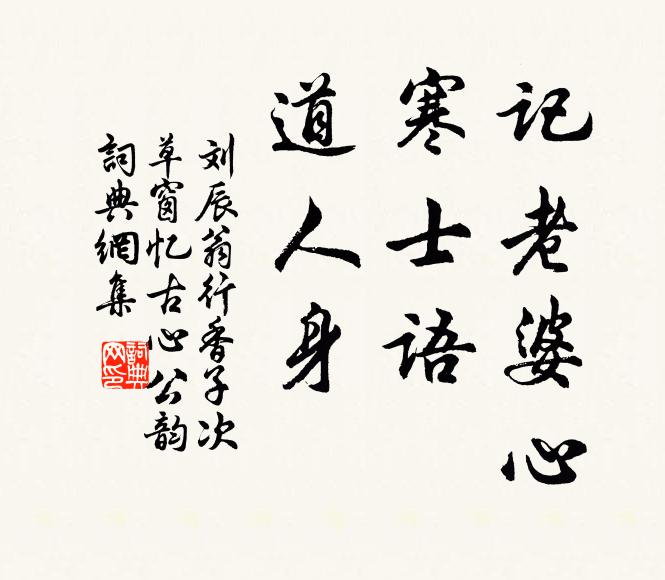 记老婆心
寒士语
道人身
刘辰翁行香子次
草窗忆古心公韵
詞典網集
詞典网印